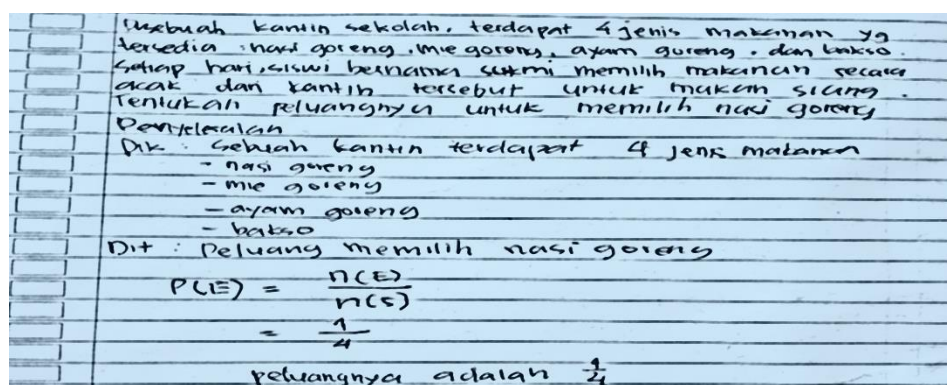 Disebuah kantin sekolah, terdapat 4 jenis makanan yg
tersedia : nasi goreng, mie goreng, ayam goreng, dan bakso.
Setiap hari, siswi bernama sukmi memilih makanan secara
acak dari kantin tersebut untuk makan siang.
Tentukan peluangnya untuk memilih nasi goreng
Penyelesaian
Dik : Sebuah kantin terdapat 4 jenis makanan
- nasi goreng
- mie goreng
- ayam goreng
- bakso
Dit : Peluang memilih nasi goreng
P(E) = n(E)/n(S)
= 1/4
peluangnya adalah 1/4